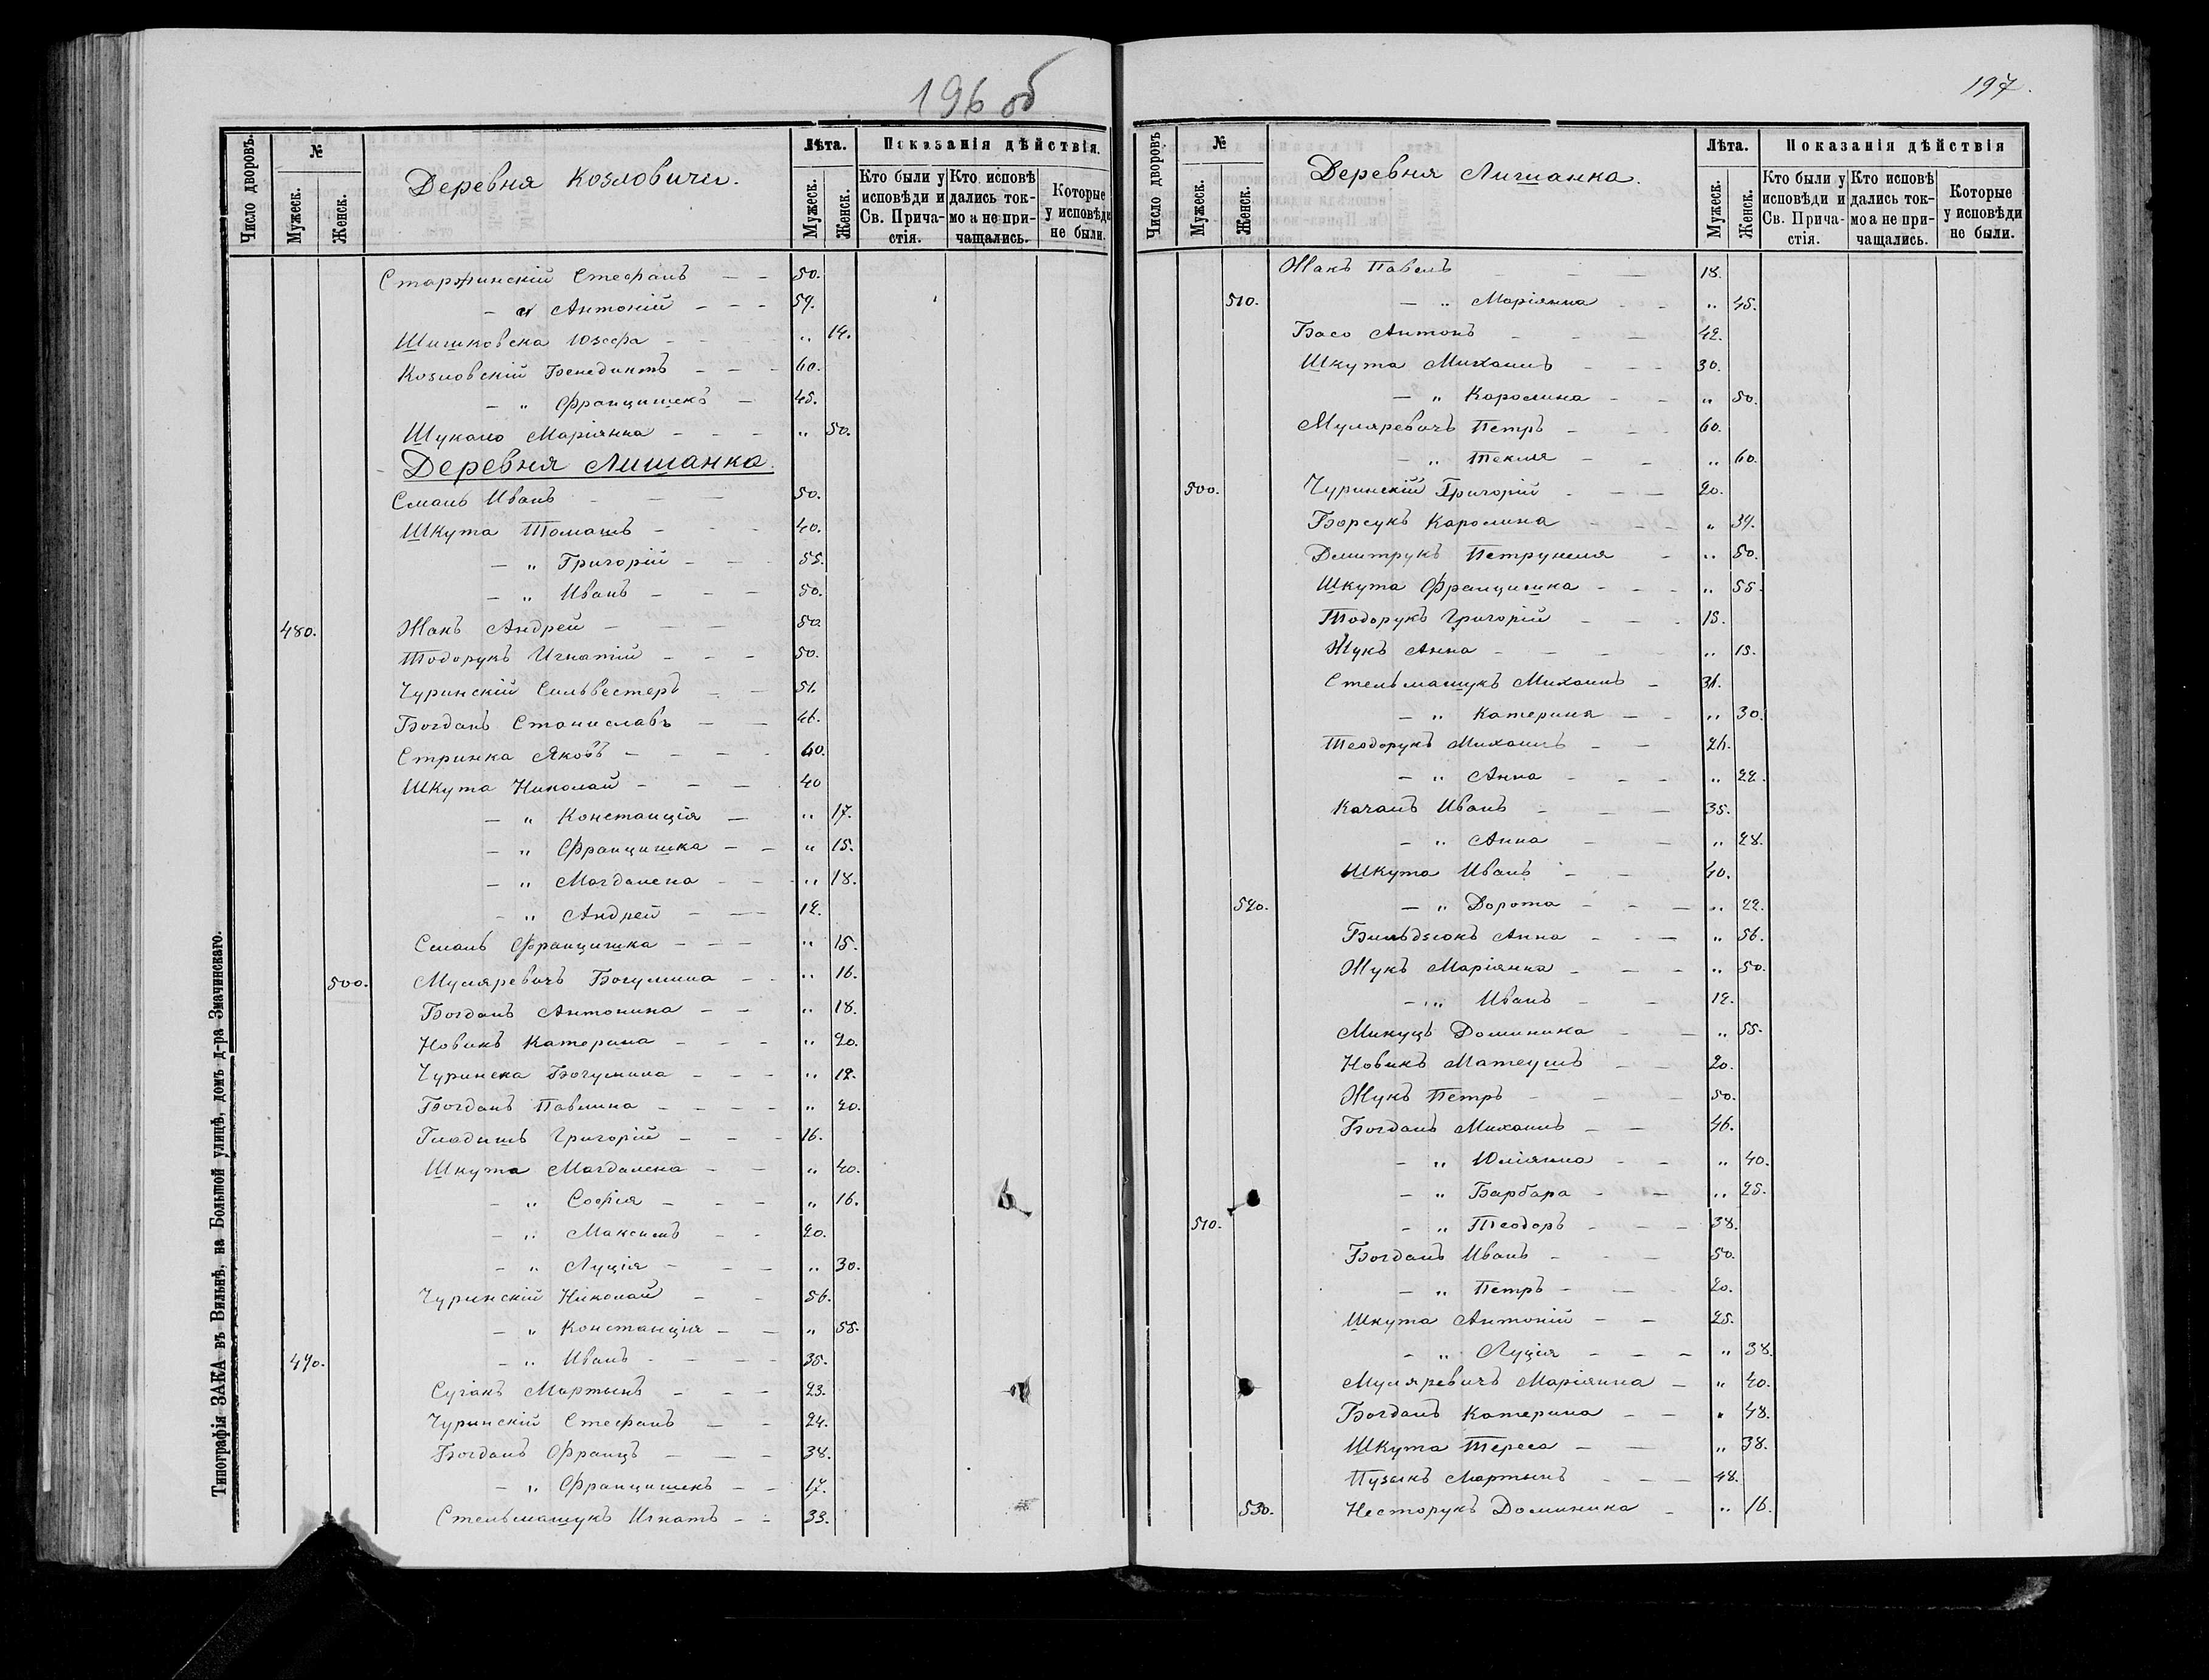 196 об
Число дворовъ.
№
Мужеск.
Женск.
Деревня Козловичи.
Лѣта.
Мужеск.
Женск.
Показанія дѣйствія.
Кто были у исповѣди и Св. Причастія.
Кто исповѣдались токмо а не причащались.
Которые у исповѣди не были.
Старжинскій Стефанъ — — 50.
— „ Антоній — — — 59.
Шишковска Юзефа — — — „ 14.
Козловскій Бенедиктъ — — — 60.
— „ Францишекъ — 45.
Шукало Маріянна — — — „ 50.
Деревня Лишанка.
Смаль Иванъ — — — 50.
Шкута Томашъ — — — 40.
— „ Григорій — — — 55.
— „ Иванъ — — — 50.
480. Жакъ Андрей — — — 50.
Тодорукъ Игнатій — — — 50.
Чуринскій Сильвестеръ — — 51.
Богданъ Станиславъ — — 46.
Стринка Яковъ — — — — 40.
Шкута Николай — — — 40
— „ Констанція — „ 17.
— „ Францишка — — „ 15.
— „ Магдалена — — „ 18.
— „ Андрей — — 12.
Смаль Францишка — — — „ 15.
500. Муляревичъ Богумила — — „ 16.
Богданъ Антонина — — „ 18.
Новикъ Катерина — — — „ 20.
Чуринска Богумила — — — „ 12.
Богданъ Павлина — — — — „ 20.
Гладишъ Григорій — — — 16.
Шкута Магдалена — — „ 40.
— „ Софія — — — „ 16.
— „ Максимъ — — 20.
— „ Луція — — — „ 30.
Чуринскій Николай — — 56.
— „ Констанція — — „ 55.
490. — „ Иванъ — — — 35.
Суганъ Мартынъ — — — 23.
Чуринскій Стефанъ — — 24.
Богданъ Францъ — — — 38.
— „ Францишекъ — — 17.
Стельмашукъ Игнатъ — — 33.
Типографія ЗАКА въ Вильнѣ, на Большой улицѣ, домъ д-ра Змачинскаго.
197.
Число дворовъ.
№
Мужеск.
Женск.
Деревня Лишанка.
Лѣта.
Мужеск.
Женск.
Показанія дѣйствія
Кто были у исповѣди и Св. Причастія.
Кто исповѣдались токмо а не причащались.
Которые у исповѣди не были.
Жакъ Павелъ — — 18.
510. — „ Маріянна — — „ 45.
Басо Антонъ — — — 42.
Шкута Михаилъ — — — 30.
— „ Каролина — — „ 50.
Муляревичъ Петръ — — — 60.
— „ Текля — — „ 60.
500. Чуринскій Григорій — — — 20.
Борсукъ Каролина — — — „ 39.
Дмитрукъ Петрунеля — „ 50.
Шкута Францишка — — — „ 55.
Тодорукъ Григорій — — — 15.
Жукъ Анна — — — — „ 15.
Стельмашукъ Михаилъ — 31.
— „ Катериня — — „ 30.
Теодорукъ Михаилъ — — 26.
— „ Анна — — — „ 22.
Качанъ Иванъ — — — 35.
— „ Анна — — „ 28.
Шкута Иванъ — — 40.
520. — „ Дорота — — — „ 22.
Бильдзюкъ Анна — — — „ 56.
Жукъ Маріянна — — — „ 50.
— „ Иванъ — — 12.
Микуцъ Доминика — — „ 55.
Новикъ Матеушъ — — 20.
Жукъ Петръ — — — 50.
Богданъ Михаилъ — — 46.
— „ Юліянна — — „ 40.
— „ Барбара — — „ 25.
510. — „ Теодоръ — — — 38.
Богданъ Иванъ — — — 50.
— „ Петръ — — 20.
Шкута Антоній — — 25.
— „ Луція — — — „ 38.
Муляревичъ Маріянна — „ 40.
Богданъ Катерина — — „ 48.
Шкута Тереса — — „ 38.
Пузыкъ Мартынъ — — — 48.
530. Несторукъ Доминика — „ 16.